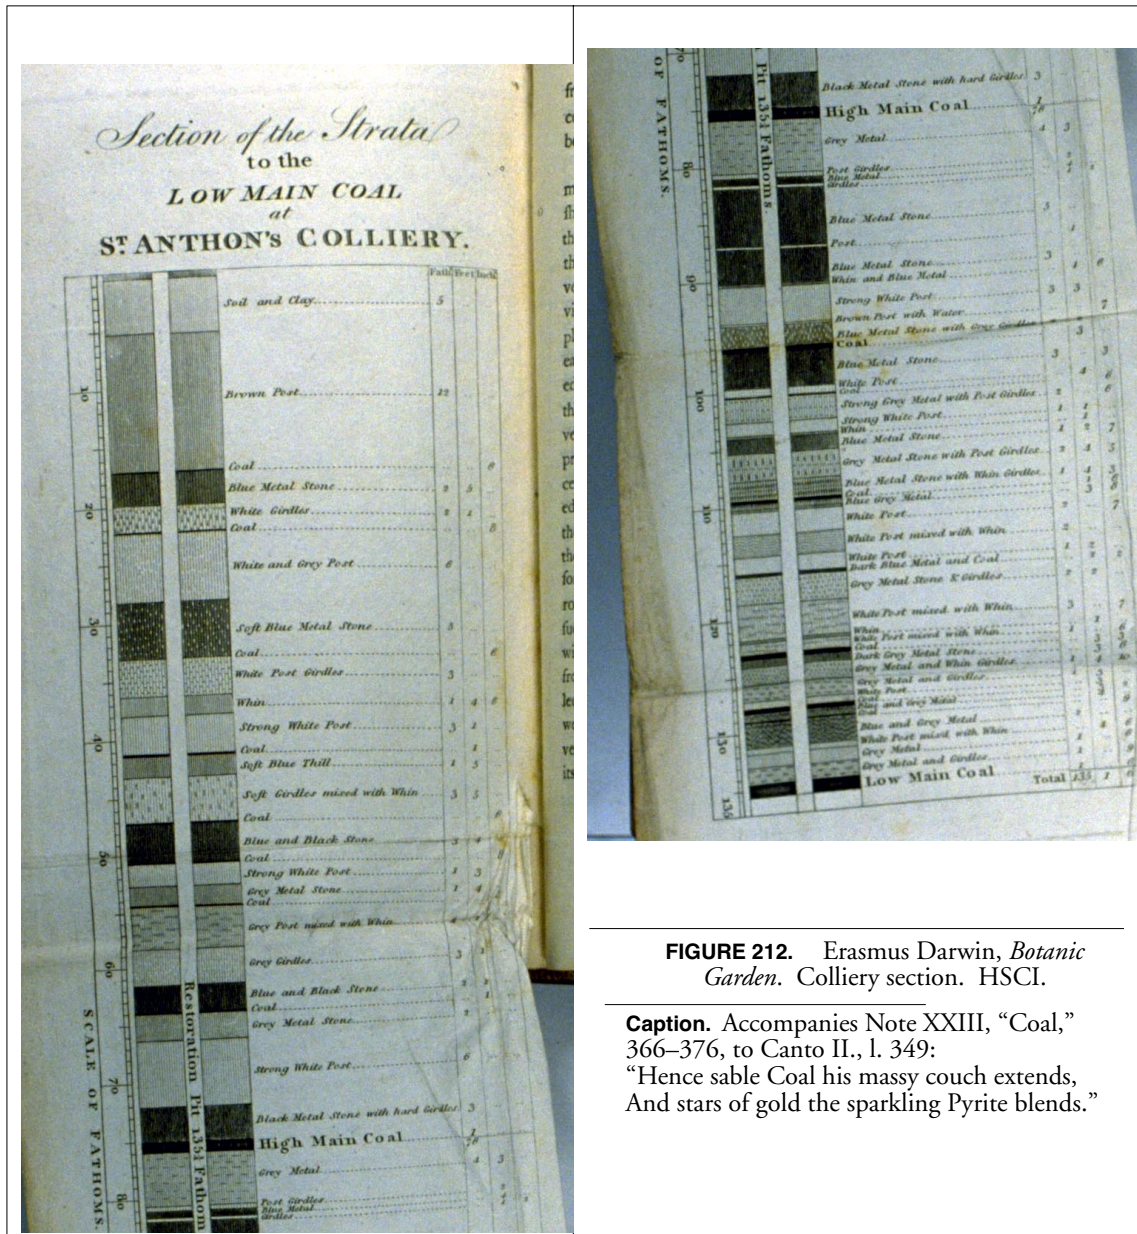 Section of the Strata
to the
LOW MAIN COAL
at
ST ANTHON'S COLLIERY.
Fath. Feet Inch.
Soil and Clay 5
Brown Post 12
Coal 6
Blue Metal Stone 2 5
White Girdles 2 1
Coal 8
White and Grey Post 6
Soft Blue Metal Stone 3
Coal 6
White Post Girdles 3
Whin 1 4 6
Strong White Post 3 1
Coal 1
Soft Blue Thill 1 5
Soft Girdles mixed with Whin 3 5
Coal 6
Blue and Black Stone 3 4
Coal 8
Strong White Post 1 3
Grey Metal Stone 1 4
Coal
Grey Post mixed with Whin 4
Grey Girdles 3 1
Blue and Black Stone 2
Coal 1
Grey Metal Stone 2
Strong White Post 6
Black Metal Stone with hard Girdles 3
High Main Coal 1
Grey Metal 4 3
Post Girdles 2
Blue Metal
Girdles
10
20
30
40
50
60
70
80
SCALE OF FATHOMS.
Restoration Pit 135¼ Fathom
70
OF FATHOMS.
Pit 135¼ Fathoms.
Black Metal Stone with hard Girdles 3
High Main Coal 1
Grey Metal 4 3
Post Girdles
Blue Metal
Girdles
Blue Metal Stone 3
Post 1
Blue Metal Stone 3
Whin and Blue Metal 1 6
Strong White Post 3 3
Brown Post with Water 7
Blue Metal Stone with Grey Girdles
Coal
Blue Metal Stone 3 3
White Post 4 6
Coal 6
Strong Grey Metal with Post Girdles 2
Strong White Post 1 1
Whin 1
Blue Metal Stone 1 2 7
Grey Metal Stone with Post Girdles 2 4 5
Blue Metal Stone with Whin Girdles 1 4 3
Coal
Blue Grey Metal
White Post 2 7
White Post mixed with Whin 2
White Post 1 2
Dark Blue Metal and Coal
Grey Metal Stone & Girdles 2 2
White Post mixed with Whin 3 7
Whin
White Post mixed with Whin
Coal
Dark Grey Metal Stone
Grey Metal and Whin Girdles 1 4 10
Grey Metal and Girdles
White Post
Coal
Blue and Grey Metal
Coal
Blue and Grey Metal
White Post mixed with Whin
Grey Metal
Grey Metal and Girdles
Low Main Coal
Total 135 1
80
90
100
110
120
130
135
FIGURE 212. Erasmus Darwin, Botanic
Garden. Colliery section. HSCI.
Caption. Accompanies Note XXIII, “Coal,”
366–376, to Canto II., l. 349:
“Hence sable Coal his massy couch extends,
And stars of gold the sparkling Pyrite blends.”